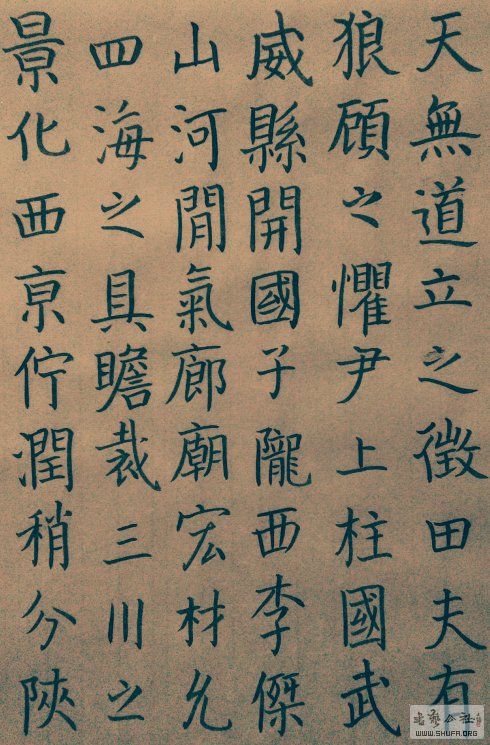 天無道立之徵田夫有
狼顧之懼尹上柱國武
威縣開國子隴西李傑
山河閒氣廊廟宏材允
四海之具瞻裁三川之
景化西亰佇潤稍分陝
WWW.SHUFA.ORG